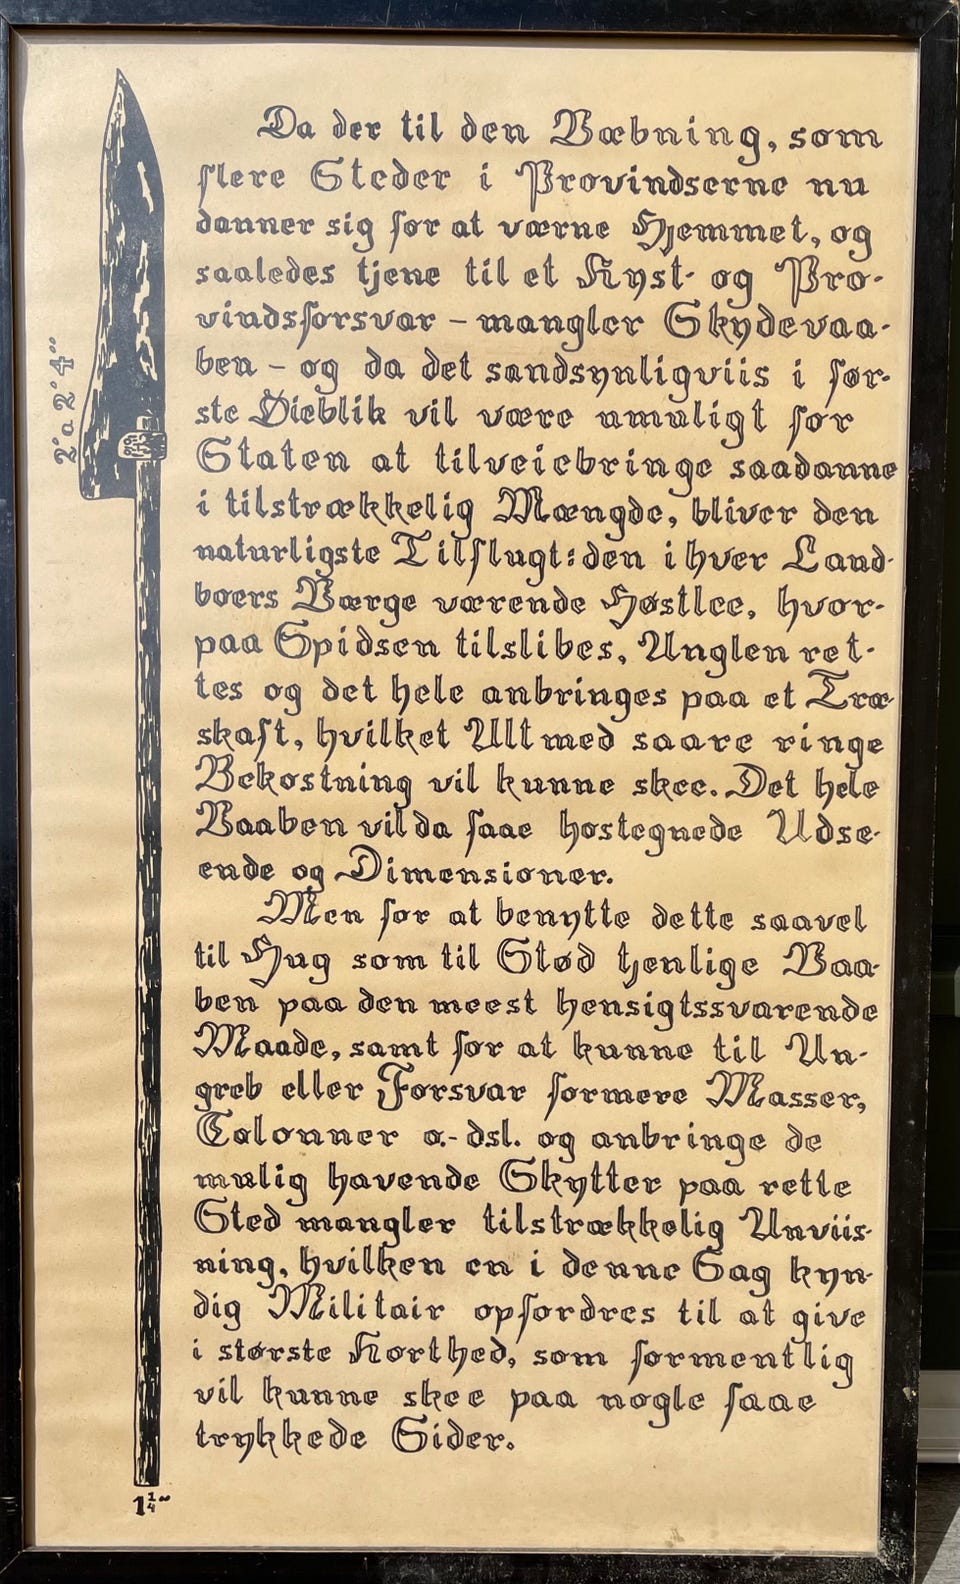 Da der til den Væbning, som
flere Steder i Provindserne nu
danner sig for at værne Hjemmet, og
saaledes tjene til et Kyst- og Pro-
vindsforsvar - mangler Skydevaa-
ben - og da det sandsynligviis i før-
ste Øieblik vil være umuligt for
Staten at tilveiebringe saadanne
i tilstrækkelig Mængde, bliver den
naturligste Tilflugt: den i hver Land-
boers Værge værende Høstlee, hvor-
paa Spidsen tilslibes, Anglen ret-
tes og det hele anbringes paa et Træ-
skaft, hvilket Alt med saare ringe
Bekostning vil kunne skee. Det hele
Vaaben vil da faae hostegnede Udse-
ende og Dimensioner.
Men for at benytte dette saavel
til Hug som til Stød tjenlige Vaa-
ben paa den meest hensigtssvarende
Maade, samt for at kunne til An-
greb eller Forsvar formere Masser,
Colonner o.-dsl. og anbringe de
mulig havende Skytter paa rette
Sted mangler tilstrækkelig Anviis-
ning, hvilken en i denne Sag kyn-
dig Militair opfordres til at give
i største Korthed, som formentlig
vil kunne skee paa nogle faae
trykkede Sider.
2' a 2' 4"
1 1/4"